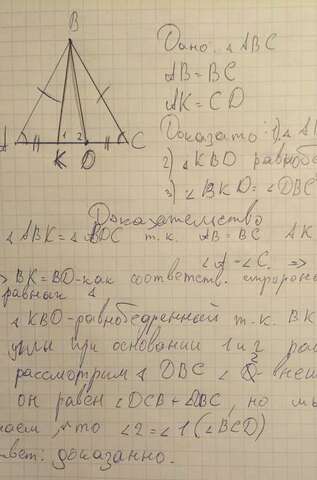 B
A K D C
1 2
Дано: ∠ ABC
AB = BC
AK = CD
Доказать: 1) ∠ A
2) ∠ KBD равноб
3) ∠ BKD = ∠ DBC
Доказательство
∠ ABK = ∠ BDC т.к. AB = BC AK
∠A = ∠C. =>
=> BK = BD - как соответств. сторон
равных ∆
∠ KBD - равнобедренный т.к. BK
углы при основании 1 и 2 ра
рассмотрим ∠ DBC ∠ 2 - внеш
он равен ∠DCB + ∠DBC, но мы
чаем, что ∠2 = ∠1 (∠BCD)
вет: доказанно.